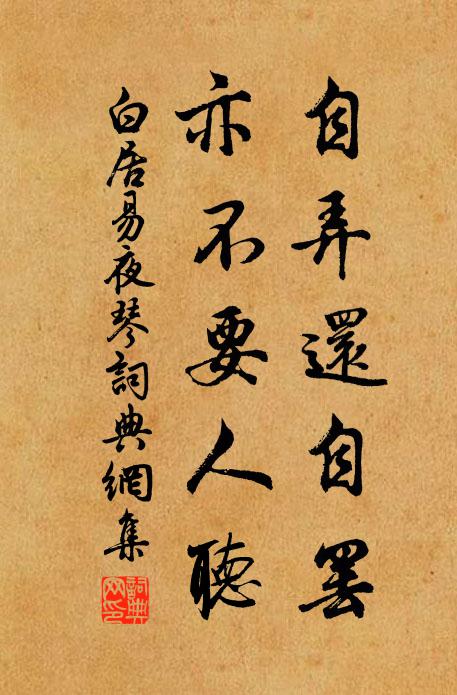 自弄還自罷
亦不要人聽
白居易夜琴詞典網集
詞典網印